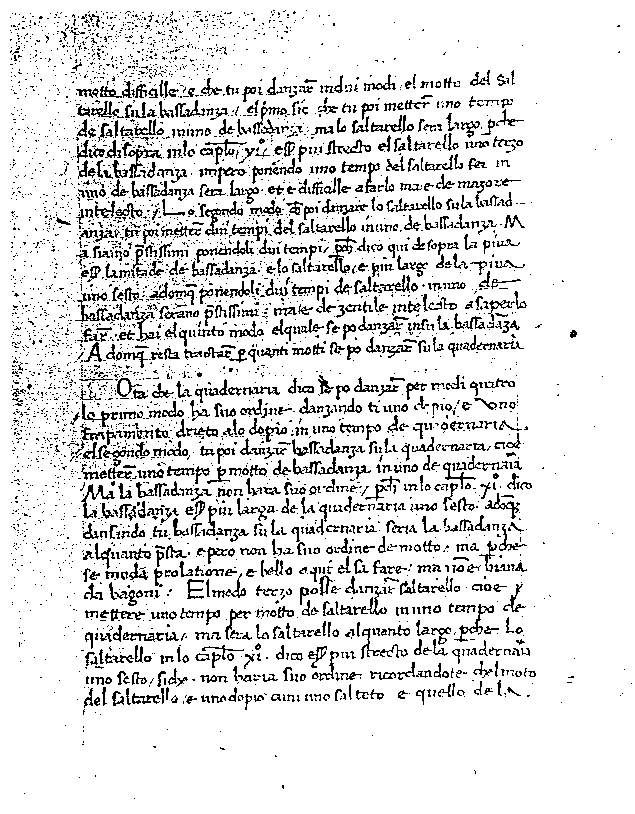 motto difficille / e che tu poi danzar̄ indui modi · el motto del Sal
tarello su la bassadanza / el p̄mo sie che tu poi metter̄ uno tempo
de saltarello in uno de bassadanza · ma lo saltarello sera largo p̱che
dico disopra in lo cap̄lo · xj° · ess̄ piu strecto el saltarello uno terzo
de la bassadanza · impero ponendo uno tempo del saltarello
in uno de bassadanza sera largo · et e difficille a farlo ma e de magore
intelecto · / Lo segondo modo poi danzare lo saltarello su la bassad
anza · tu poi mettere dui tempi del saltarello in uno de bassadanza · M
a siamo p̄stissimi ponendoli dui tempi / p̱ch̄ dico qui de sopra la piva
ess̄ la mitade de bassadanza · e lo saltarello / e piu largo de la piva
uno sesto · adomq̄ ponendoli dui tempi de saltarello · in uno de
bassadanza serano p̄stissimi · ma e de zentile intelecto a saperlo
far̄ · et hai el quinto modo el quale se po danzar̄ in su la bassadāza
/ Adomq̄ resta tractar̄ p̱ quanti motti se po danzar̄ su la quadernaria
Ora de la quadernaria dico se po danzar̄ per modi quatro
lo primo modo ha suo ordine danzando ti uno dopio / e uno
frapamento drieto a lo dopio in uno tempo de quadernaria ·
el segondo modo / tu poi danzar̄ bassadanza su la quadernaria / cioe
metter̄ uno tempo p̱ motto de bassadanza in uno de quadernaīa
/ Ma la bassadanza non hara suo ordine / p̱ch̄ in lo cap̄lo · xj° · dico
la bassadanza ess̄ piu larga de la quadernaria uno sesto · adoq̄
dansando tu bassadanza su la quadernaria seria la bassadanza
alquanto p̄sta · e pero non ha suo ordine de motto / ma p̱che
se moda prolatione / e bello a qui el sa fare / ma nō e
da bagoni · / El modo terzo posse danzar̄ saltarello cioe
mettere uno tempo per motto de saltarello in uno tempo de
quadernaria / ma sera lo saltarello alquanto largo p̱che lo
saltarello in lo cap̄lo xj° · dico ess̄ piu strecto de la quadernaīa
uno sesto / siche · non haria suo ordine ricordandote chel moto
del saltarello / e uno dopio cum uno salteto e quello de la ·